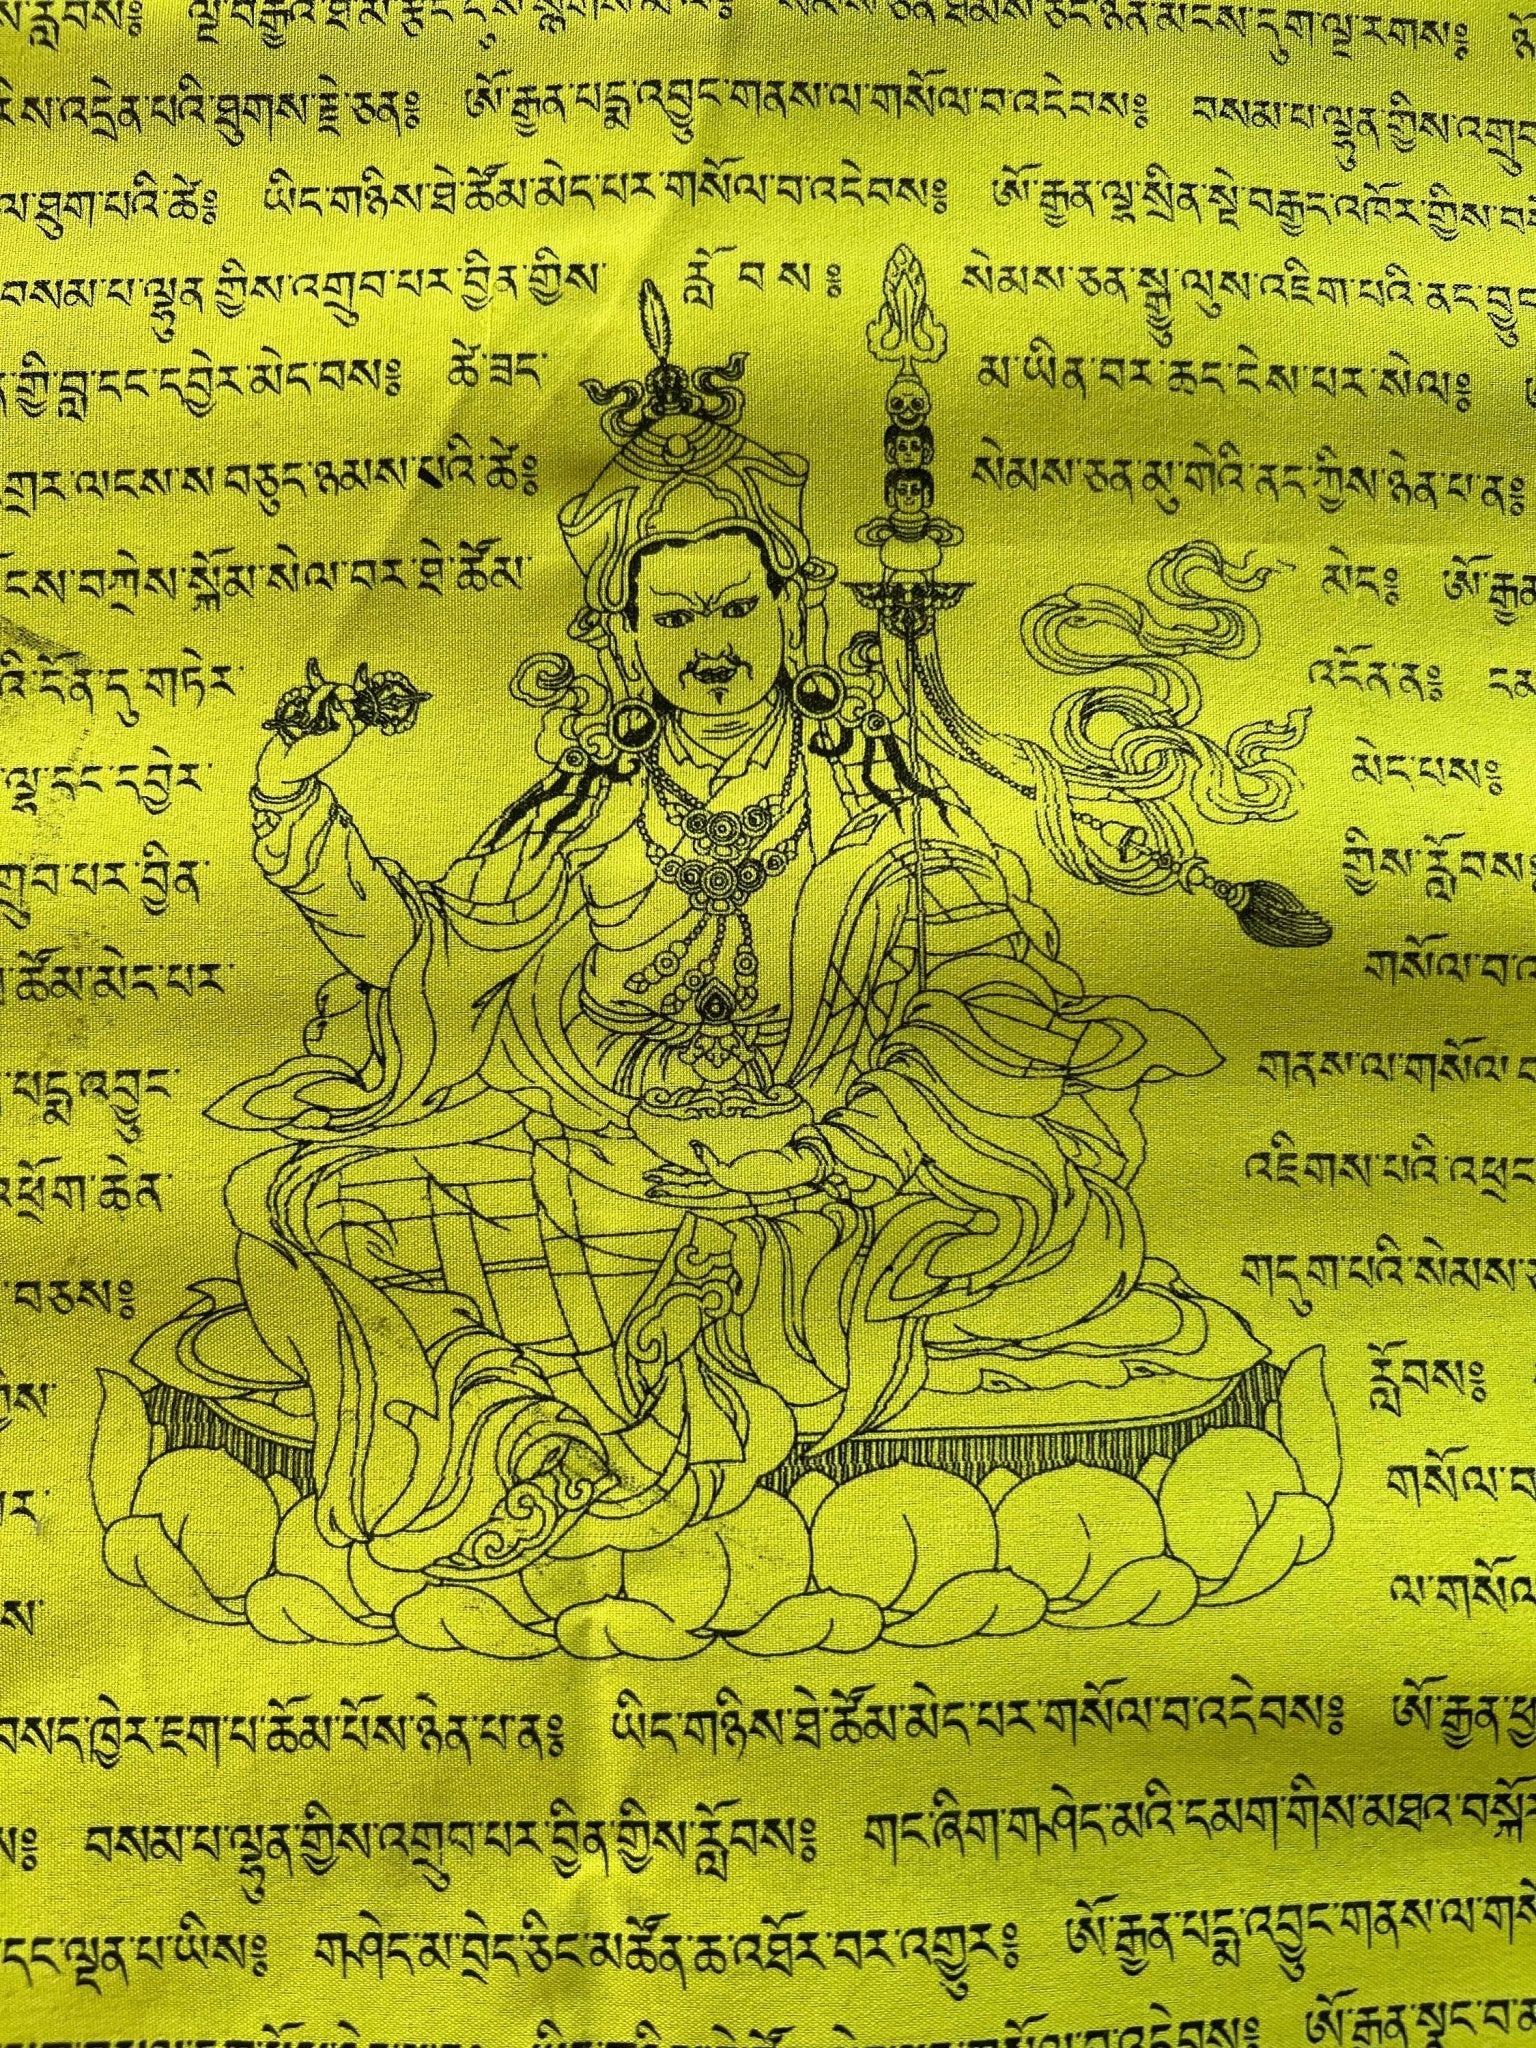 རླབས༔ ལྔ་བརྒྱའི་ཐ་མ་
རིས་འདྲེན་པའི་ཐུགས་རྗེ་ཅན༔ ཨོ་རྒྱན་པདྨ་འབྱུང་གནས་ལ་གསོལ་བ་འདེབས༔ བསམ་པ་ལྷུན་གྱིས་འགྲུབ
ལ་ཐུག་པའི་ཚེ༔ ཡིད་གཉིས་ཐེ་ཚོམ་མེད་པར་གསོལ་བ་འདེབས༔ ཨོ་རྒྱན་ལྷ་སྲིན་སྡེ་བརྒྱད་འཁོར་གྱིས་བ
བསམ་པ་ལྷུན་གྱིས་འགྲུབ་པར་བྱིན་གྱིས་ རློབས༔ སེམས་ཅན་སྒྱུ་ལུས་འཇིག་པའི་ནད་བྱུང
གྱི་བླ་དང་དབྱེར་མེད་བས༔ ཚེ་ཟད་ མ་ཡིན་བར་ཆད་ངེས་པར་སེལ༔
གྲར་ལངས་ས་བཅུད་ཉམས་པའི་ཚེ༔ སེམས་ཅན་མུ་གེའི་ནད་ཀྱིས་ཉེན་པ་ན༔
ངས་བཀྲེས་སྐོམ་སེལ་བར་ཐེ་ཚོམ་ མེད༔ ཨོ་རྒྱན
འི་དོན་དུ་གཏེར་ འདོན་ན༔ དམ
ལྷ་དང་དབྱེར་ མེད་པས༔
གྲུབ་པར་བྱིན་ གྱིས་རློབས༔
ཚོམ་མེད་པར་ གསོལ་བ་འ
པདྨ་འབྱུང་ གནས་ལ་གསོལ་བ
འཕྲོག་ཆེན་ འཇིགས་པའི་འཕྲང
བཅས༔ གདུག་པའི་སེམས་
གྱིས་ རློབས༔
པར་ གསོལ་བ
ས་ ལ་གསོལ
བསད་ཁྱེར་ཇག་པ་ཆོམ་པོས་ཉེན་པ་ན༔ ཡིད་གཉིས་ཐེ་ཚོམ་མེད་པར་གསོལ་བ་འདེབས༔ ཨོ་རྒྱན་ཕྱ
ས༔ བསམ་པ་ལྷུན་གྱིས་འགྲུབ་པར་བྱིན་གྱིས་རློབས༔ གང་ཞིག་གཤེད་མའི་དམག་གིས་མཐའ་བསྐོར
དང་ལྡན་པ་ཡིས༔ གཤེད་མ་བྲེད་ཅིང་མཚོན་ཆ་འཐོར་བར་འགྱུར༔ ཨོ་རྒྱན་པདྨ་འབྱུང་གནས་ལ་གསོ